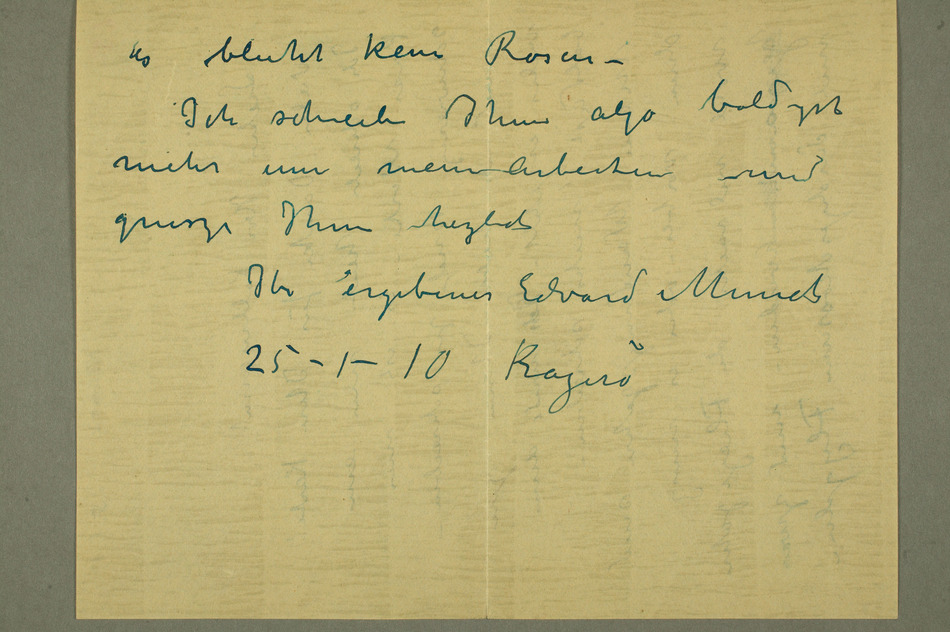 es blüht kein Rosen –
Ich schreibe Ihnen also baldigst
mehr um meine Arbeiten und
grusze Ihnen herzlich
Ihr ergebener Edvard Munch
25 – 1 – 10 Kragerö